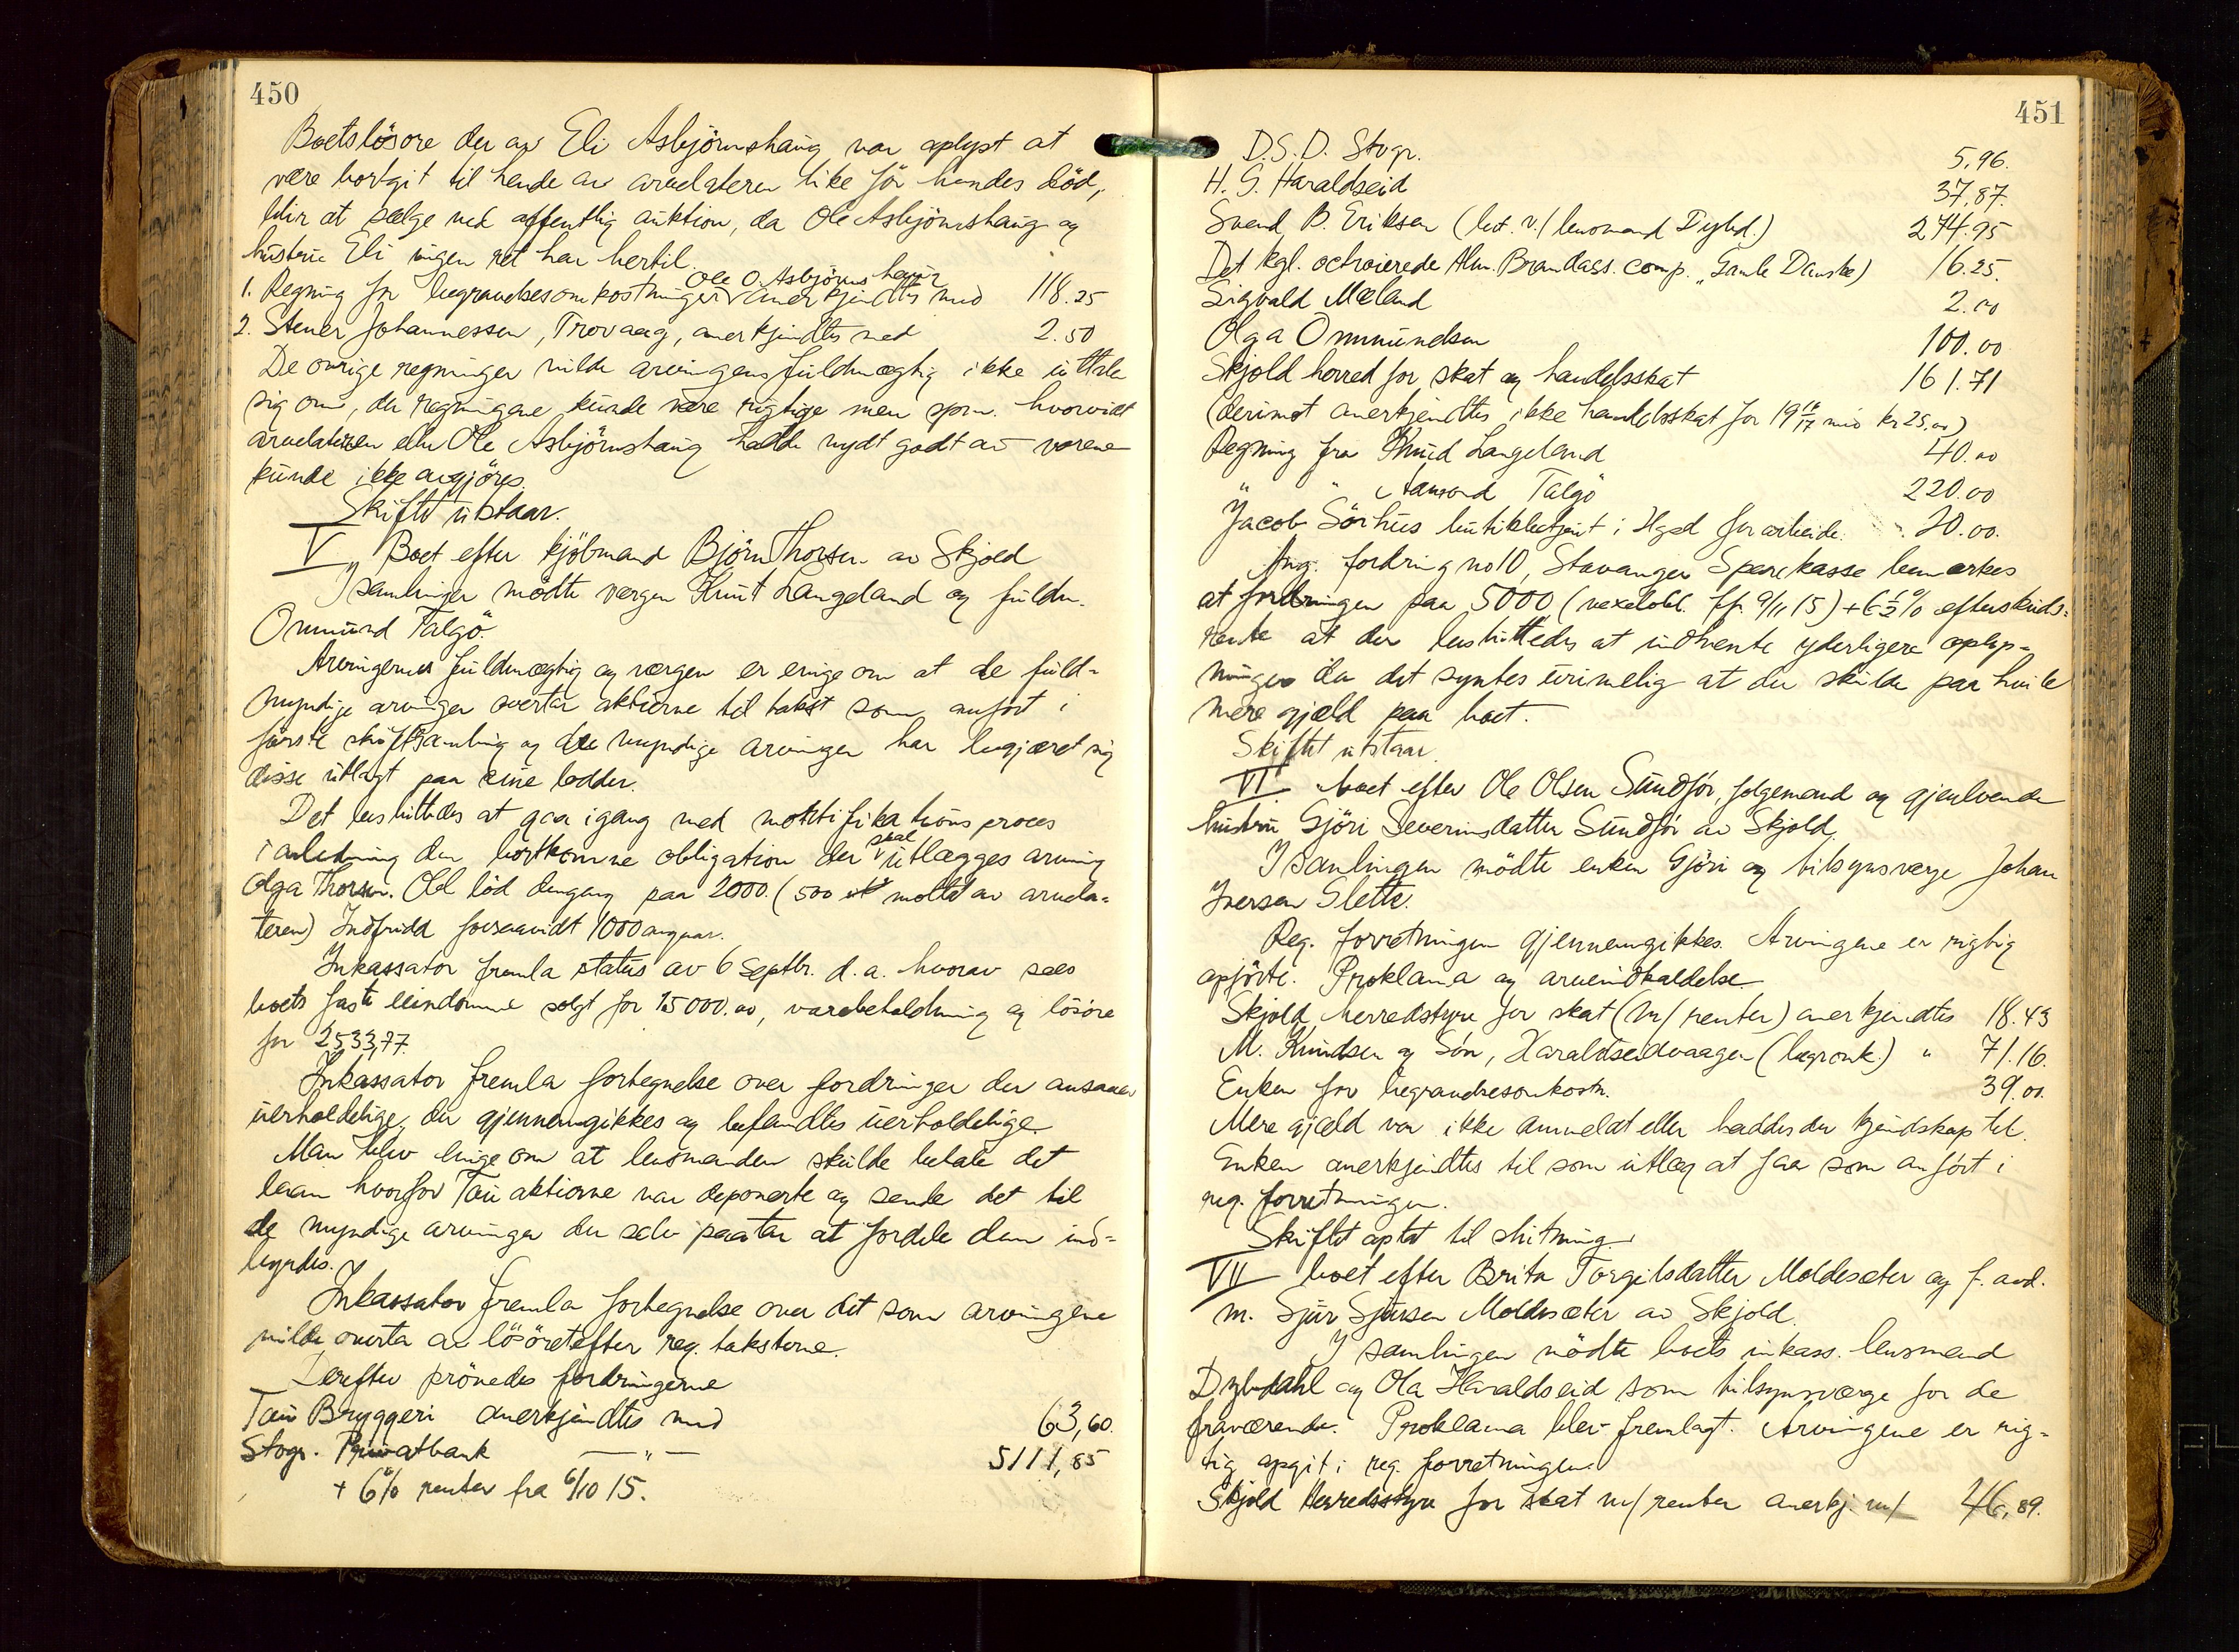 450
Boets lösöre der av Eli Asbjörnshaug var oplyst at
være bortgit til hende av arvelateren like för hendes död,
blir at sælge ved offentlig auktion, da Ole Asbjörnshaug og
hustru Eli ingen ret har hertil.
1. Regning for begravelsesomkostninger Ole O. Asbjörnshaug anerkjendtes med 118.25
2. Stener Johannessen, Trovaag, anerkjendtes med 2.50
De övrige regninger vilde arvingens fuldmægtig ikke uttale
sig om, da regningene kunde være rigtige men spm. hvorvidt
arvelateren eller Ole Asbjörnshaug hadde nydt godt av varene
kunde ikke avgjöres.
Skiftet utstaar.
V Boet efter kjöbmand Björn Thorsen av Skjold
I samlingen mödte vergen Knut Langeland og fuldm.
Ommund Talgö.
Arvingernes fuldmægtig og vergen er enige om at de fuld-
myndige arvinger overtar aktierne til takst som anfört i
förste skiftesamling og de myndige arvinger har begjæret sig
disse utlagt paa sine lodder.
Det besluttedes at gaa igang med mortifikations proces
i anledning den bortkomne obligation der skal utlægges arving
Olga Thorsen. Obl. löd dengang paa 2000. (500 mottat av arvela-
teren) Indfridd forsaavidt 1000 angaar.
Inkassator fremla status av 6 Septbr. d.a. hvorav saes
boets faste eiendomme solgt for 15000.00, varebeholdning og lösöre
for 2533,77.
Inkassator fremla fortegnelse over fordringer der ansaaes
uerholdelige, der gjennemgikkes og befandtes uerholdelige.
Man blev enige om at lensmanden skulde betale det
laan hvorfor Tau aktierne var deponerte og sende det til
de myndige arvinger der selv paatar at fordele dem ind-
byrdes.
Inkassator fremla fortegnelse over det som arvingene
vilde overta av lösöret efter reg. taksterne.
Derefter prövedes fordringerne
Tau Bryggeri anerkjendtes med 63,60.
Stvgr. Privatbank — " — 5111,85
+ 6% renter fra 6/10 15.
451
D.S.D. Stvgr. 5.96.
H. G. Haraldseid 37.87.
Svend B. Eriksen (bet. v./ lensmand Dybd.) 274.95
Det kgl. octroierede Alm. Brandass. comp. "Gamle Danske) 16.25.
Sigvald Mæland 2.00
Olga Ommundsen 100.00
Skjold herred for skat og handelsskat 161.71
(derimot anerkjendtes ikke handelsskat for 19 16/17 med kr 25.00)
Regning fra Knud Langeland 40.00
" " Aamund Talgö 220.00
Jacob Sörhus butikbetjent i Hgsd for arbeide. 20.00.
Ang. fordring no 10, Stavanger Sparekasse bemerkes
at fordringen paa 5000 (vexelobl. ff. 9/11 15) + 6 1/2 % efterskuds-
rente at der besluttedes at indhente yderligere oplys-
ninger da det syntes urimelig at der skulde paa hvile
mere gjæld paa boet.
Skiftet utstaar.
VI boet efter Ole Olsen Sundför, folgemand og gjenlevende
hustru Gjöri Severinsdatter Sundför av Skjold.
I samlingen mödte enken Gjöri og tilsynsverge Johan
Iversen Slette.
Reg. forretningen gjennemgikkes. Arvingene er rigtig
opförte. Proklama og arveindkaldelse
Skjold herredstyre for skat (m/ renter) anerkjendtes 18.43
M. Knudsen og Sön, Haraldseidvaagen (begr.omk.) " 71.16.
Enken for begravelsesomkostn. 39.00.
Mere gjæld var ikke anmeldt eller haddes der kjendskap til.
Enken anerkjendtes til som utlæg at faa som anfört i
reg. forretningen.
Skiftet optat til slutning.
VII boet efter Brita Torgilsdatter Moldesæter og f. avd.
m. Sjur Sjursen Moldesæter av Skjold.
I samlingen mödte boets inkass. lensmand
Dybdahl og Ola Haraldseid som tilsynsværge for de
fraværende. Proklama blev fremlagt. Arvingene er rig-
tig opgit i reg. forretningen.
Skjold Herredsstyre for skat m/ renter anerkj. m/ 46,89.